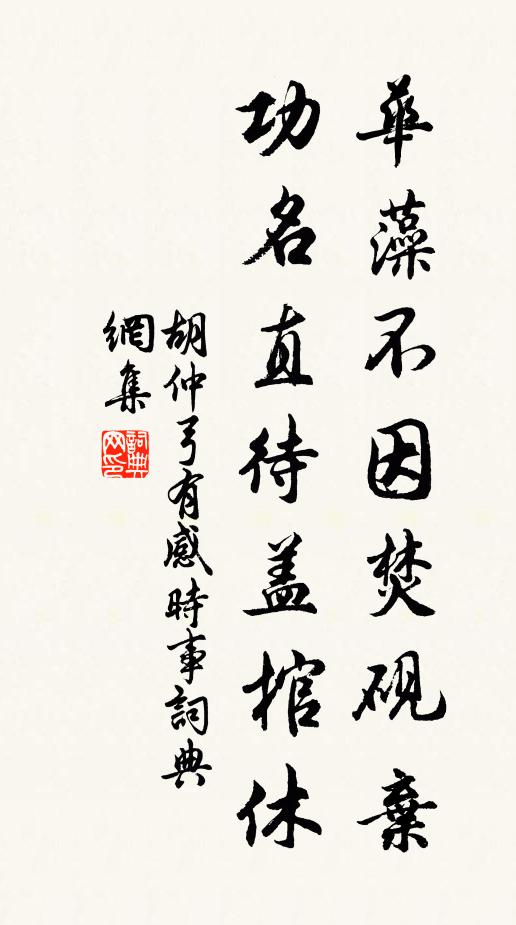 華藻不因焚硯棄
功名直待盖棺休
胡仲弓有感時事詞典
網集
詞典网印